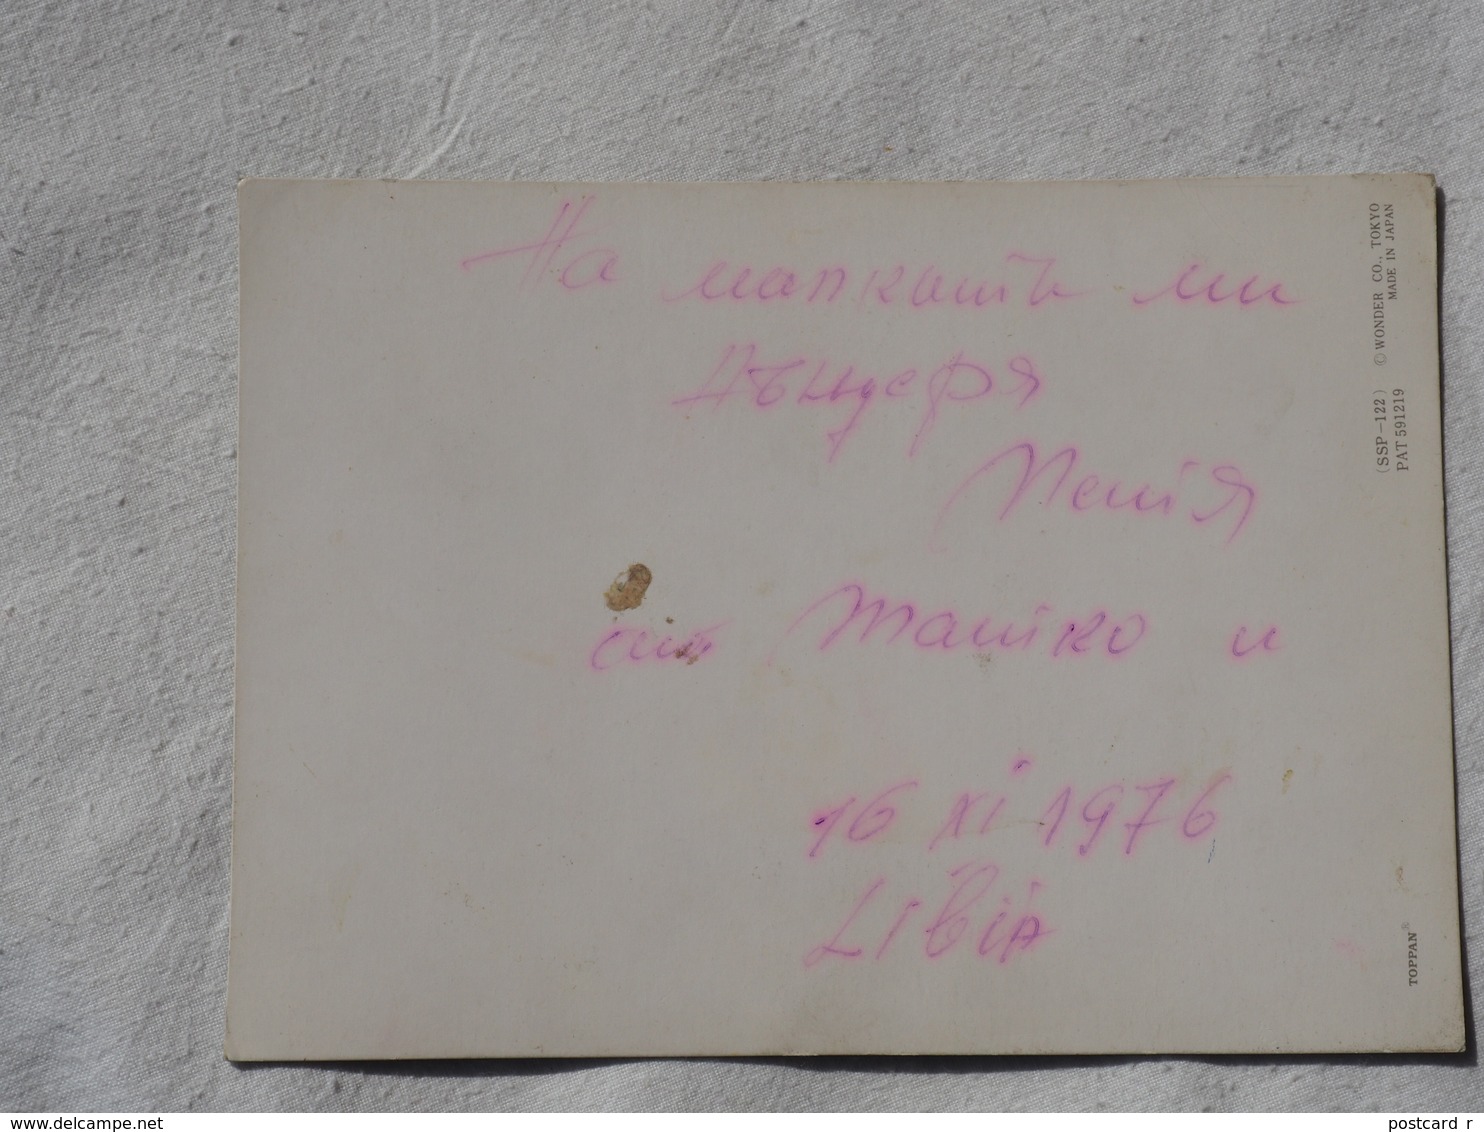 На малката ми
дъщеря
Петя
от Татко и
16 XI 1976
LIBIA
© WONDER CO., TOKYO
MADE IN JAPAN
(SSP-122)
PAT 591219
TOPPAN®
www.delcampe.net
postcard_r